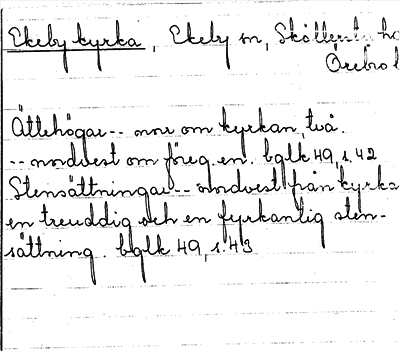 Ekeby kyrka, Ekeby sn, Sköllerst. h
Örebro l
Ättehögar -- norr om kyrkan, två.
-- nordvest om föreg. en. bglk 49, s. 42
Stensättningar -- nordvest från kyrka
en treuddig och en fyrkantig sten-
sättning. bglk 49, s. 43